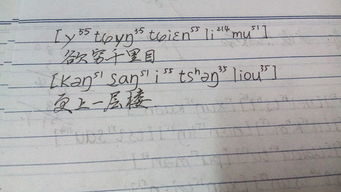 [y⁵⁵ tɕyŋ³⁵ tɕiɛn⁵⁵ li²¹⁴ mu⁵¹]
欲穷千里目
[kəŋ⁵¹ saŋ⁵¹ i⁵⁵ tsʰəŋ³⁵ liou³⁵]
更上一层楼